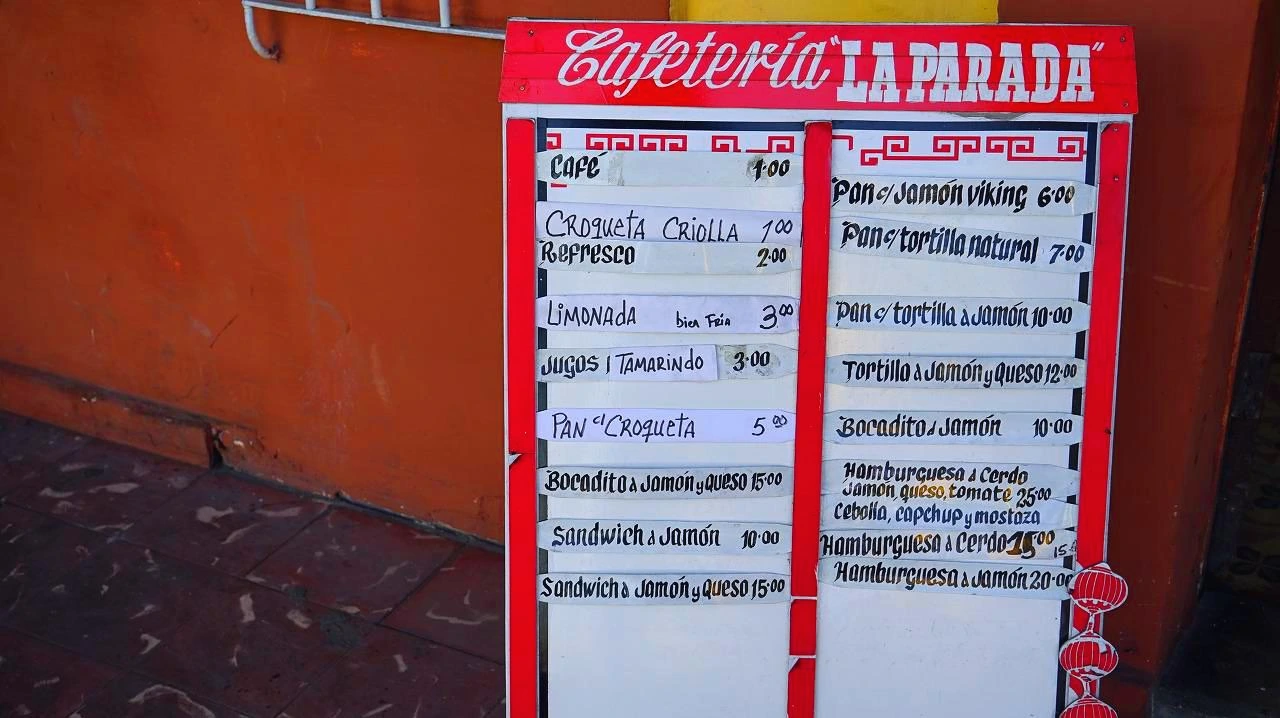 Cafetería "LA PARADA"
Café 1.00
CROQUETA CRIOLLA 1.00
Refresco 2.00
LIMONADA bien Fria 3.00
Jugos / TAMARINDO 3.00
PAN c/ CROQUETA 5.00
Bocadito d Jamón y queso 15.00
Sandwich d Jamón 10.00
Sandwich d Jamón y Queso 15.00
Pan c/ Jamón viking 6.00
Pan c/ tortilla natural 7.00
Pan c/ tortilla d Jamón 10.00
Tortilla d Jamón y Queso 12.00
Bocadito d Jamón 10.00
Hamburguesa d Cerdo
Jamón, queso, tomate 25.00
Cebolla, capchup y mostaza
Hamburguesa d Cerdo 15.00 15
Hamburguesa d Jamón 20.00